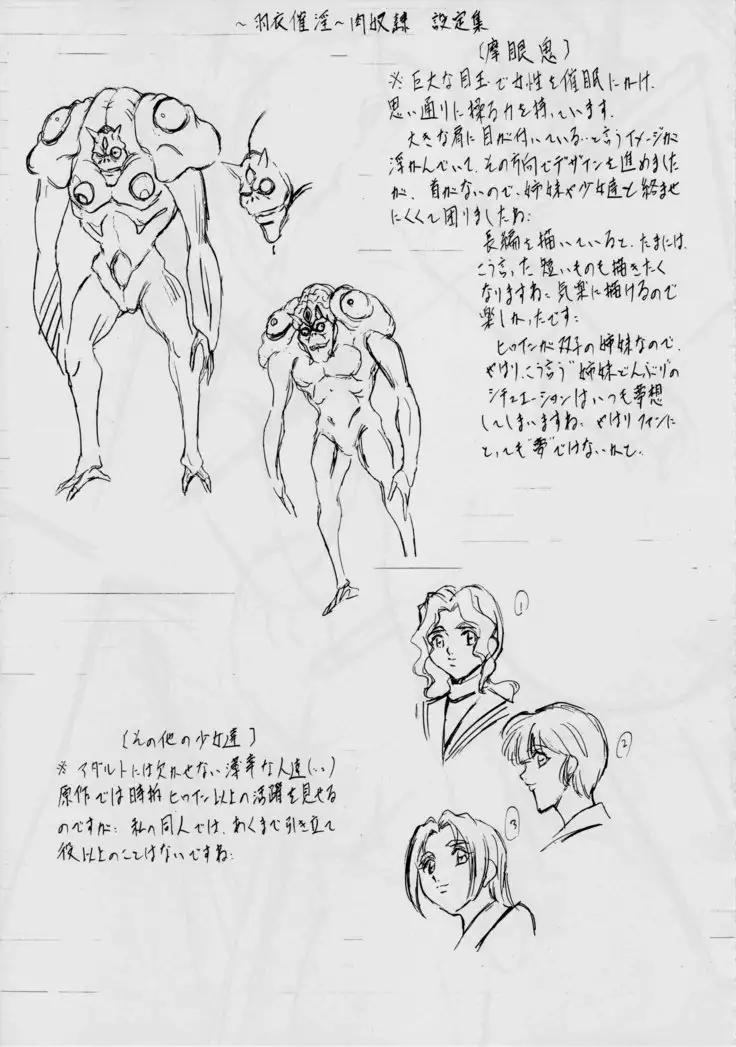 ～羽衣催淫～肉奴隷 設定集
(摩眼鬼)
※巨大な目玉で女性を催眠にかけ、
思い通りに操る力を持っています。
大きな肩に目が付いている…と言うイメージが
浮かんでいて、その方向でデザインを進めました
が、首がないので、姉妹や少女達と絡ませ
にくくて困りましたね:
長編を描いていると、たまには、
こう言った短いものも描きたく
なりますね:気楽に描けるので
楽しかったです:
ヒロインが双子の姉妹なので、
やはり、こう言う"姉妹どんぶり"の
シチュエーションはいつも夢想
してしまいますね、やはり
とっても"夢"で
①
②
③
(その他の少女達)
※アダルトには欠かせない薄幸な人達(…)
原作では時折ヒロイン以上の活躍を見せる
のですが:私の同人では、あくまで引き立て
役以上のことはないですね: